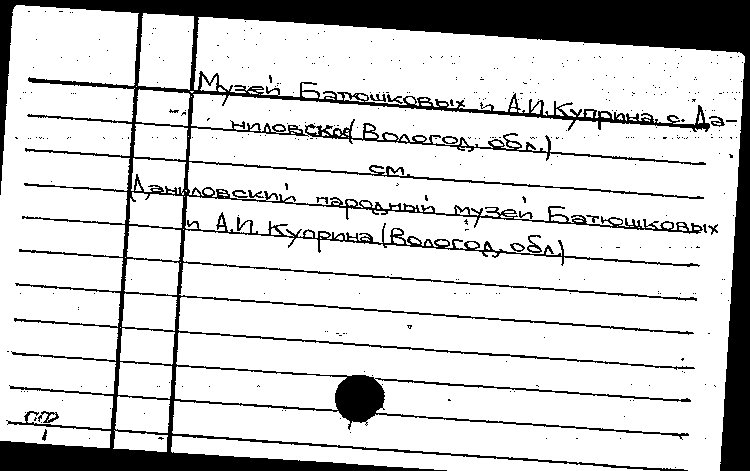 Музей Батюшковых и А.И.Куприна с. Да-
ниловское(Вологод. обл.)
см.
Даниловский народный музей Батюшковых
и А.И. Куприна (Вологод. обл.)